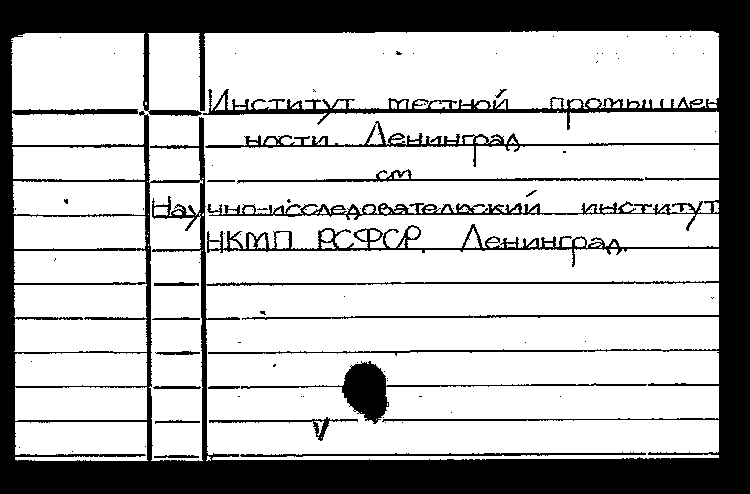 Институт местной промышлен
ности. Ленинград
см
Научно-исследовательский институт
НКМП РСФСР. Ленинград.
V